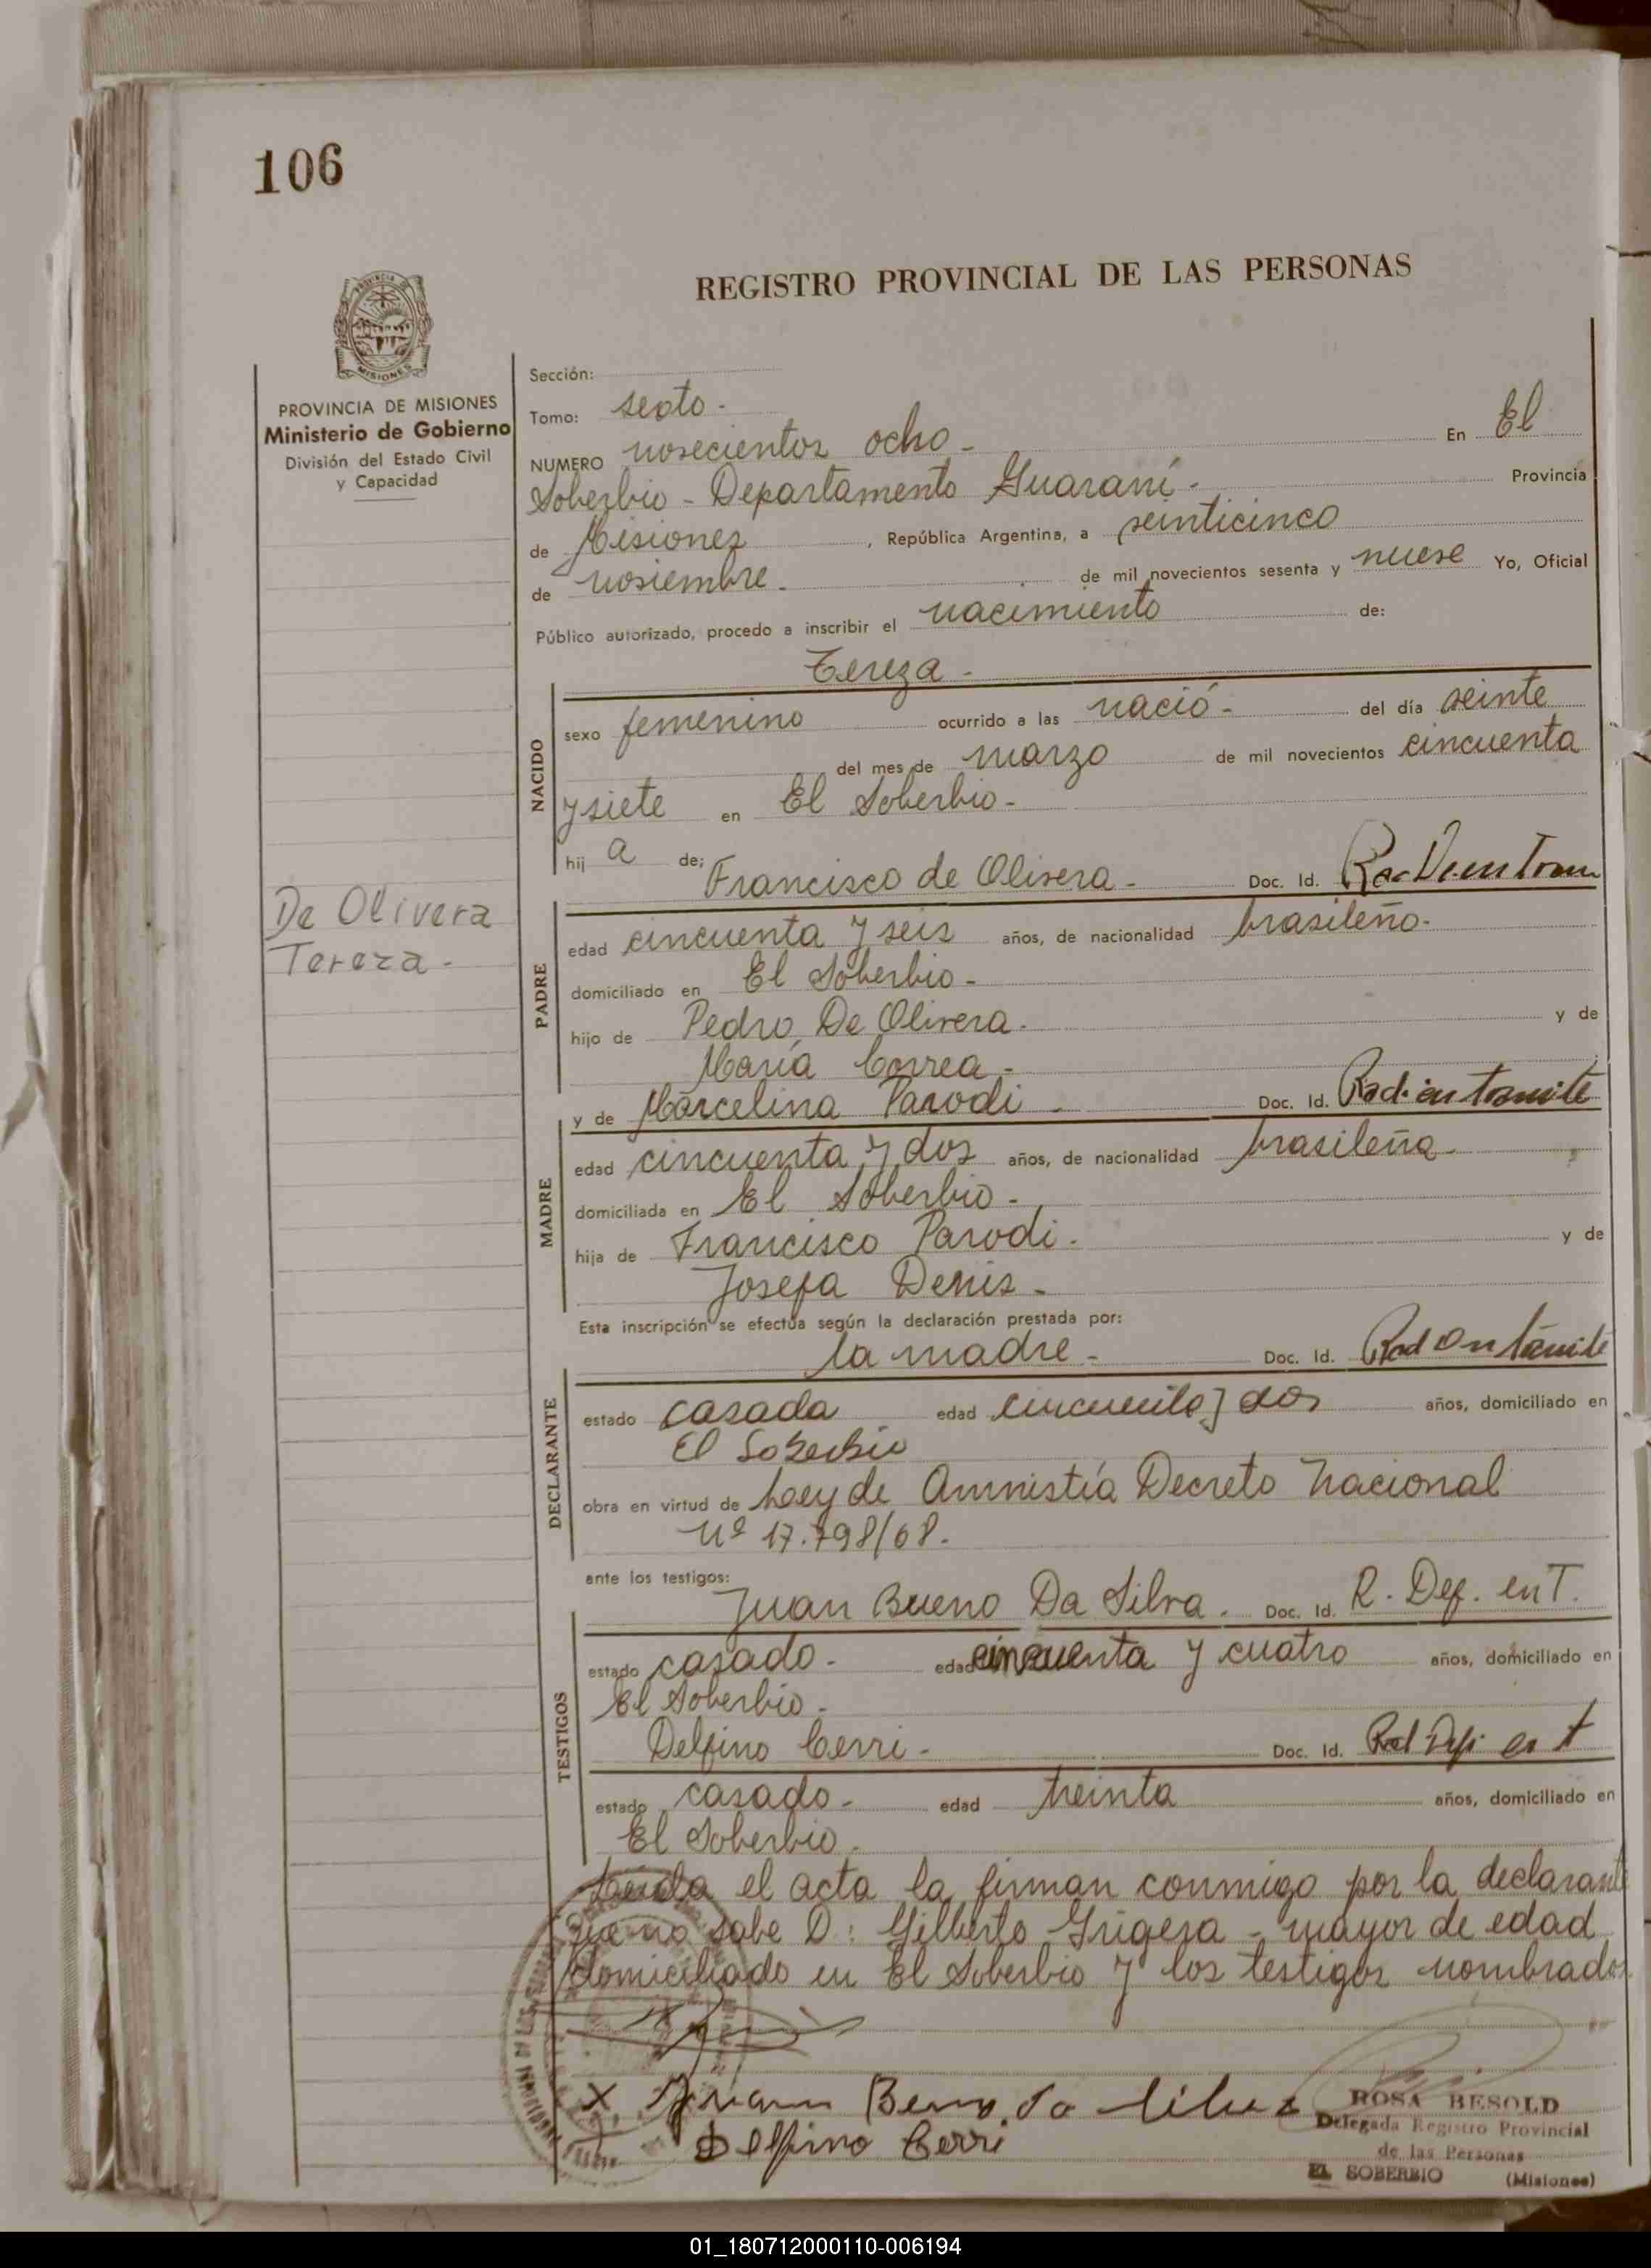 106
REGISTRO PROVINCIAL DE LAS PERSONAS
MISIONES
PROVINCIA DE MISIONES
Ministerio de Gobierno
División del Estado Civil
y Capacidad
De Olivera
Tereza -
Sección:
Tomo: sexto -
NUMERO novecientos ocho - En El
Soberbio - Departamento Guaraní - Provincia
de Misiones, República Argentina, a veinticinco
de noviembre - de mil novecientos sesenta y nueve Yo, Oficial
Público autorizado, procedo a inscribir el nacimiento de:
Tereza -
NACIDO
sexo femenino ocurrido a las nació - del día veinte
del mes de marzo de mil novecientos cincuenta
y siete en El Soberbio -
hij a de: Francisco de Olivera - Doc. Id.
PADRE
edad cincuenta y seis años, de nacionalidad brasileño -
domiciliado en El Soberbio -
hijo de Pedro De Olivera - y de
María Correa -
y de Marcelina Parodi - Doc. Id. Rad. en tramite
MADRE
edad cincuenta y dos años, de nacionalidad brasileña -
domiciliada en El Soberbio -
hija de Francisco Parodi - y de
Josefa Denis -
Esta inscripción se efectúa según la declaración prestada por:
la madre - Doc. Id. Rad en támite
DECLARANTE
estado casada edad cincuenta y dos años, domiciliado en
El Soberbio
obra en virtud de Ley de Amnistía Decreto Nacional
Nº 17.798/68.
ante los testigos:
Juan Bueno Da Silva. Doc. Id. R. Def. en T.
TESTIGOS
estado casado - edad cincuenta y cuatro años, domiciliado en
El Soberbio -
Delfino Cerri - Doc. Id.
estado casado - edad treinta años, domiciliado en
El Soberbio -
Leída el acta la firman conmigo por la declarante
que no sabe D: Gilberto Grigera - mayor de edad
domiciliado en El Soberbio y los testigos nombrados
X Juan Beno da Silva
Delfino Cerri
ROSA BESOLD
Delegada Registro Provincial
de las Personas
EL SOBERBIO (Misiones)
01_180712000110-006194